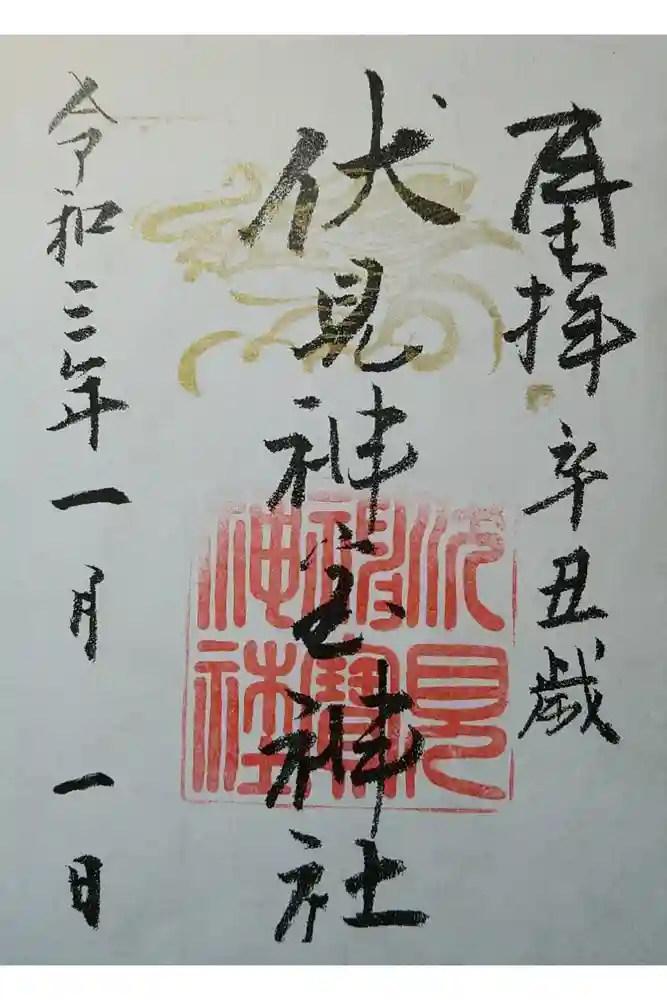 拝 辛丑歳
伏見神宝神社
令和三年一月一日
伏見
神寳
神社